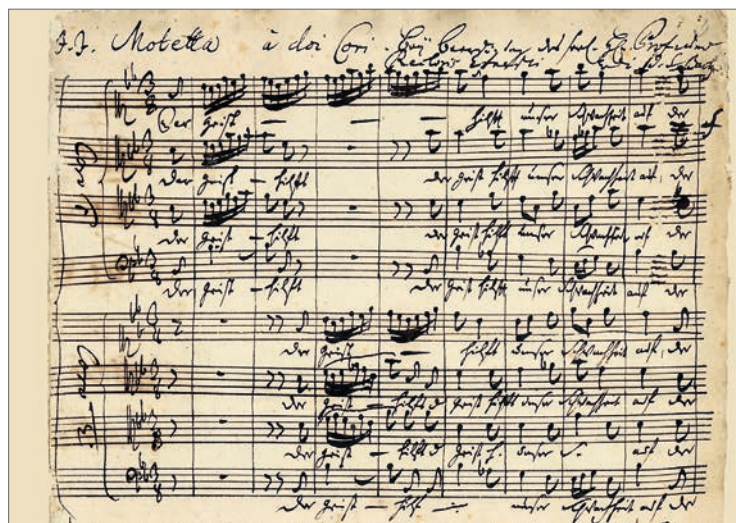 J. J. Motetta à doi Cori. bey Beerdigung des seel. Hn. Profeßoris
Rectoris Ernesti di J. S. Bach
Der Geist — — — hilfft unser Schwachheit auf der
Der Geist — hilfft der Geist hilfft unser Schwachheit auf, der
der Geist — hilfft der Geist hilfft unser Schwachheit auf der
der Geist — hilfft der Geist hilfft unser Schwachheit auf der
der Geist — hilfft unser Schwachheit auf, der
der Geist — hilfft d Geist hilfft unser Schwachheit auf der
der Geist — hilfft d Geist h. unser S. auf der
der Geist — hilft — unser Schwachheit auf der